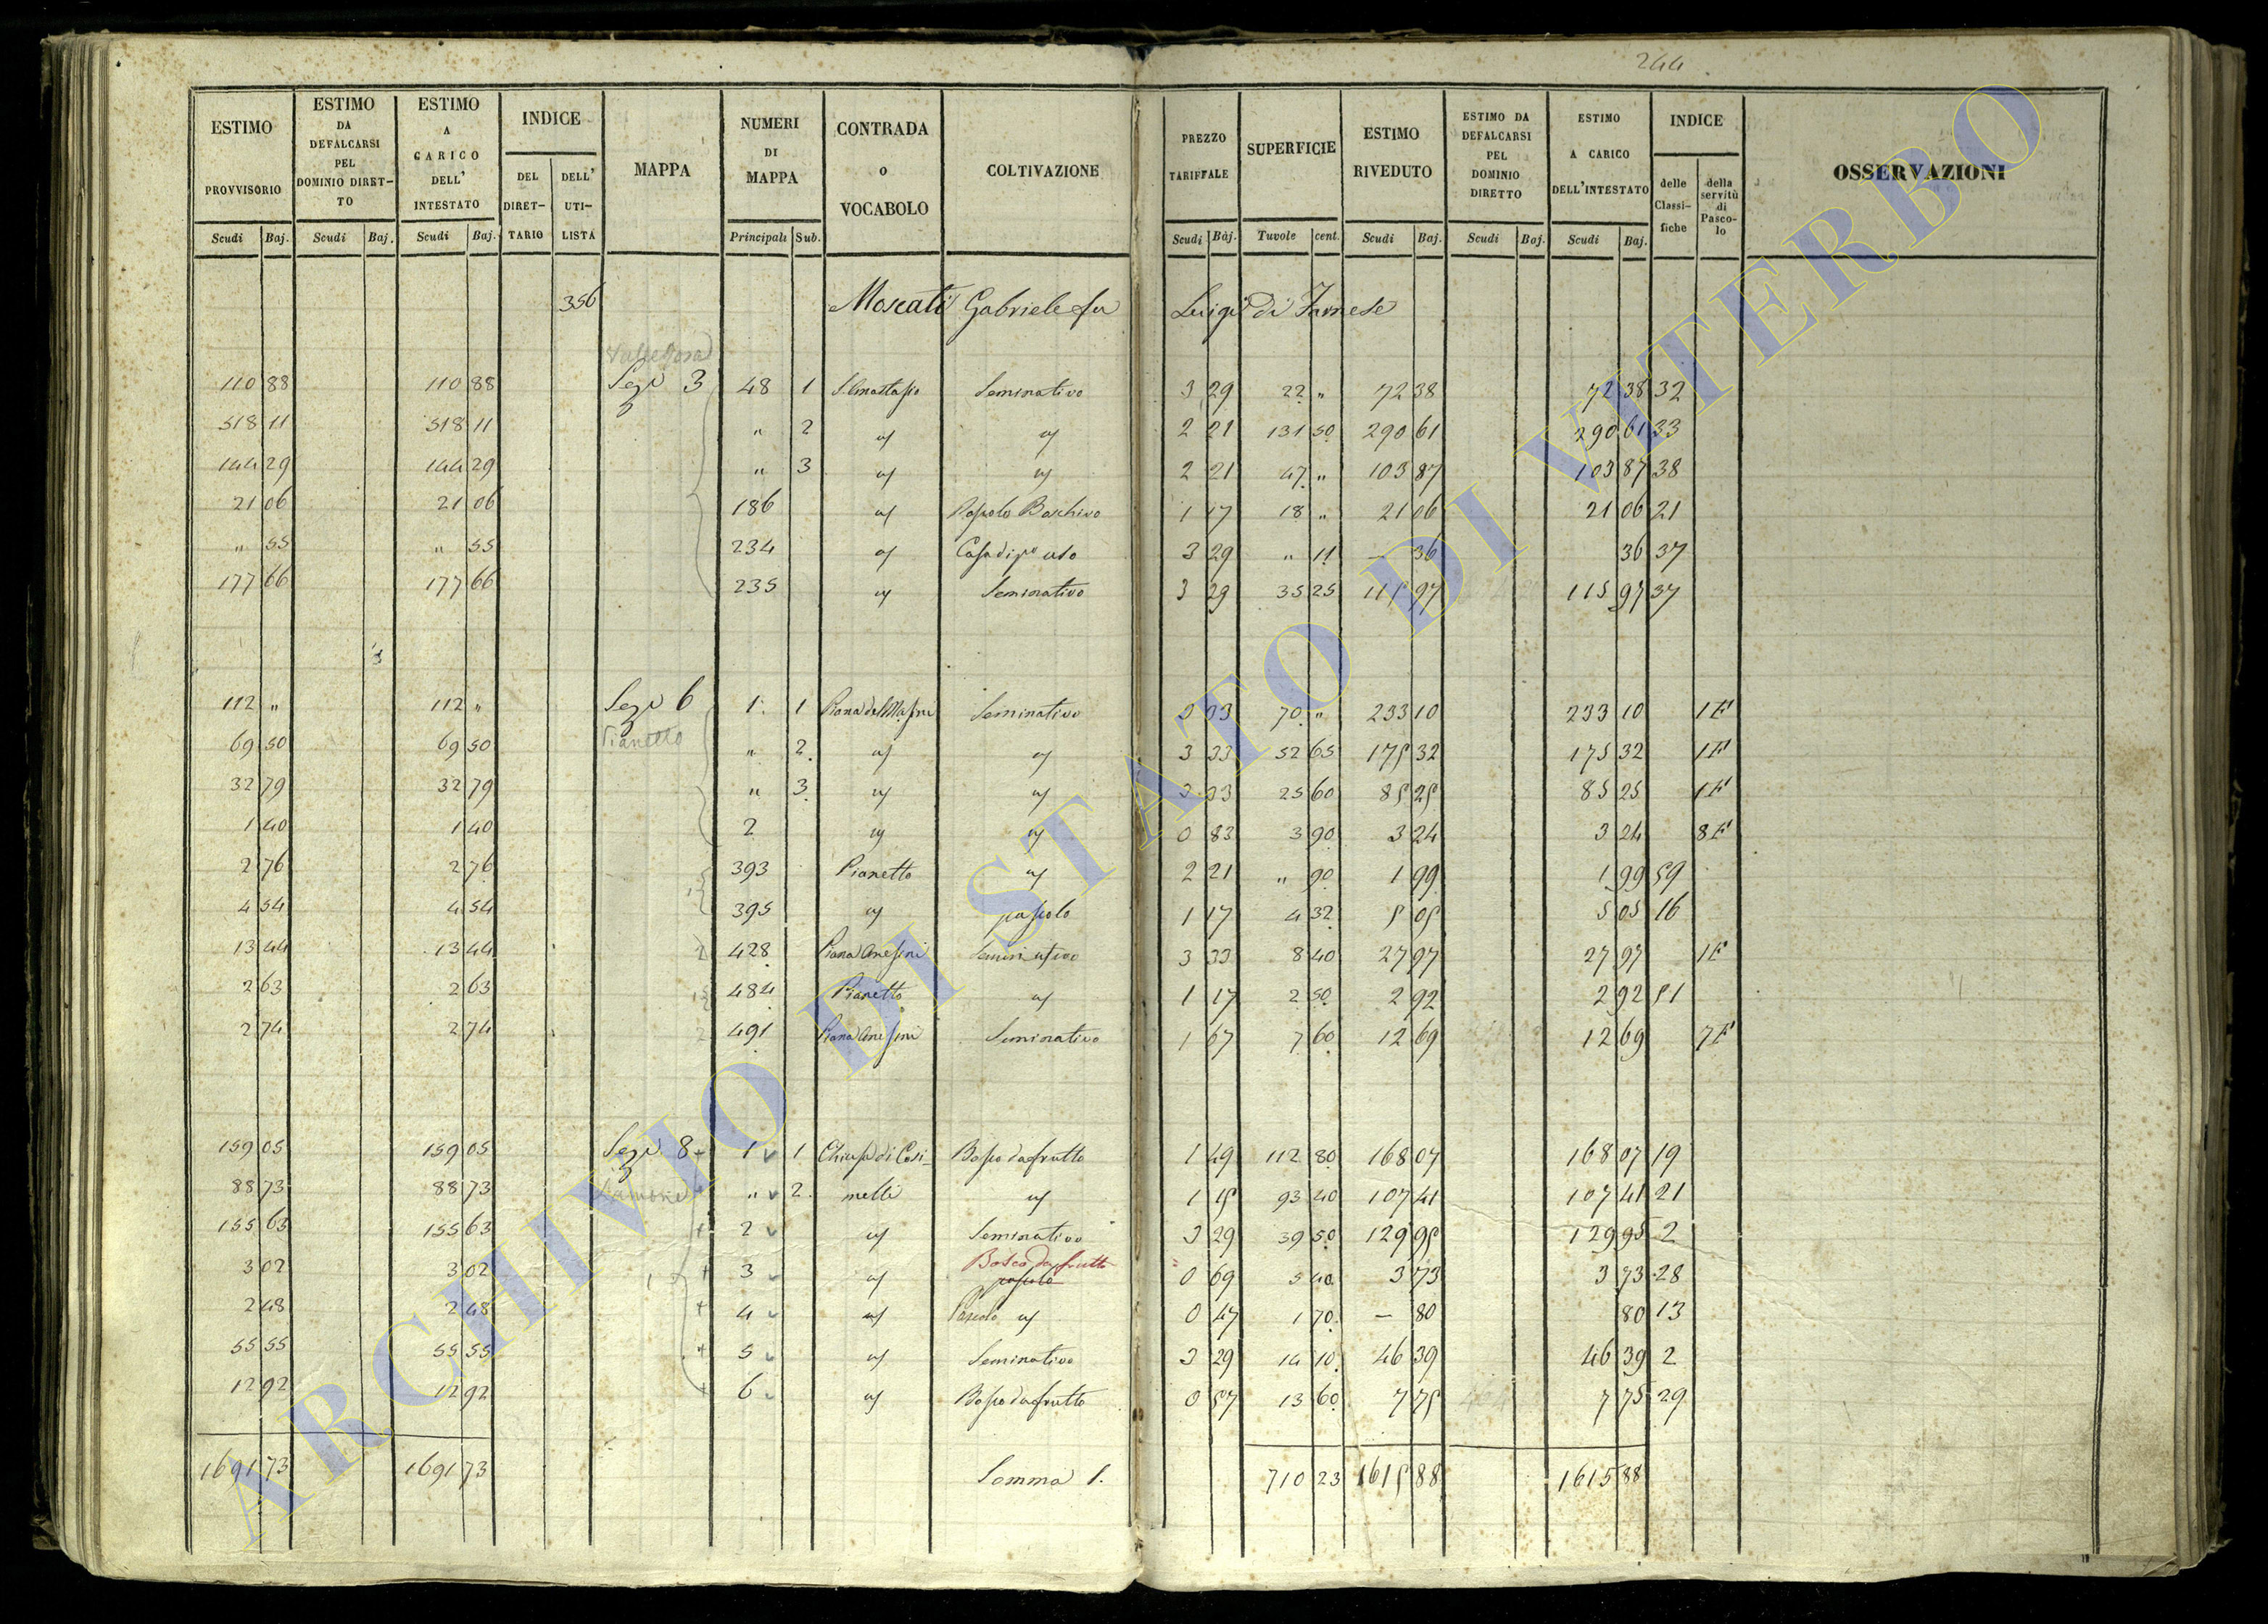 244
ESTIMO PROVVISORIO Scudi Baj. ESTIMO DA DEFALCARSI PEL DOMINIO DIRET- TO Scudi Baj. ESTIMO A CARICO DELL' INTESTATO Scudi Baj. INDICE DEL DIRET- TARIO DELL' UTI- LISTA MAPPA NUMERI DI MAPPA Principali Sub. CONTRADA o VOCABOLO COLTIVAZIONE PREZZO TARIFFALE Scudi Baj. SUPERFICIE Tavole cent. ESTIMO RIVEDUTO Scudi Baj. ESTIMO DA DEFALCARSI PEL DOMINIO DIRETTO Scudi Baj. ESTIMO A CARICO DELL'INTESTATO Scudi Baj. INDICE delle Classi- fiche della servitù di Pasco- lo OSSERVAZIONI
356 Moscati Gabriele fu Luigi di Farnese
110 88 110 88 Sez 3 48 1 S. Anastasio Seminativo 3 29 22 " 72 38 72 38 32
518 11 518 11 " 2 id id 2 21 131 50 290 61 290 61 33
144 29 144 29 " 3 id id 2 21 47 " 103 87 103 87 38
21 06 21 06 186 id Pascolo Boschivo 1 17 18 " 21 06 21 06 21
" 55 " 55 234 id Casa di po uso 3 29 " 11 — 36 36 37
177 66 177 66 235 id Seminativo 3 29 35 25 115 97 115 97 37
112 " 112 " Sez 6 1 1 Piana del Seminativo 3 33 70 " 233 10 233 10 1F
69 50 69 50 Pianetto " 2 id id 3 33 52 65 175 32 175 32 1F
32 79 32 79 " 3 id id 3 33 25 60 85 25 85 25 1F
1 40 1 40 2 id id 0 83 3 90 3 24 3 24 8F
2 76 2 76 393 Pianetto id 2 21 " 90 1 99 1 99 59
4 54 4 54 395 id pascolo 1 17 4 32 5 05 5 05 16
13 44 13 44 428 Piana Seminativo 3 33 8 40 27 97 27 97 1F
2 63 2 63 484 Pianetto id 1 17 2 50 2 92 2 92 51
2 74 2 74 491 Piana Seminativo 1 67 7 60 12 69 12 69 7F
159 05 159 05 Sez 8 1 1 Chiusa di Cosi- Bosco da frutto 1 49 112 80 168 07 168 07 19
88 73 88 73 Lamone " 2 melli id 1 15 93 40 107 41 107 41 21
155 63 155 63 2 id Seminativo 3 29 39 50 129 95 129 95 2
Bosco da frutto
3 02 3 02 3 id pascolo 0 69 5 40 3 73 3 73 28
2 48 2 48 4 id Pascolo id 0 47 1 70 — 80 80 13
55 55 55 55 5 id Seminativo 3 29 14 10 46 39 46 39 2
12 92 12 92 6 id Bosco da frutto 0 57 13 60 7 75 7 75 29
1691 73 1691 73 Somma S. 710 23 1615 88 1615 88
ARCHIVIO DI STATO DI VITERBO